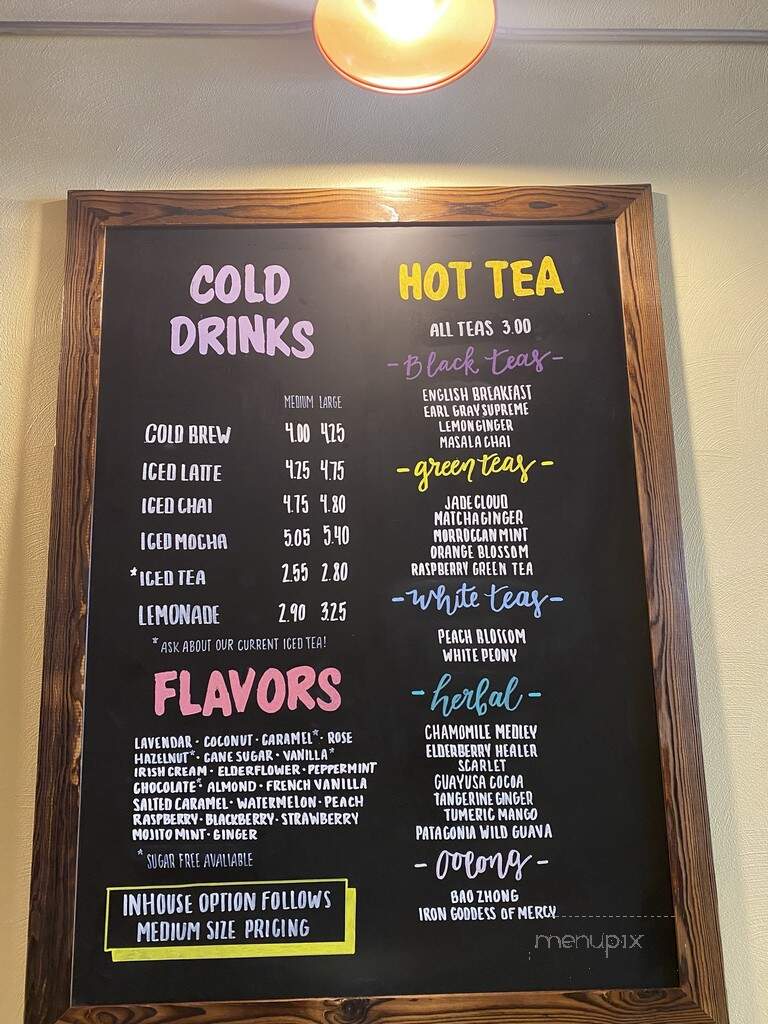 COLD
DRINKS
MEDIUM LARGE
COLD BREW 4.00 4.25
ICED LATTE 4.25 4.75
ICED CHAI 4.75 4.80
ICED MOCHA 5.05 5.40
*ICED TEA 2.55 2.80
LEMONADE 2.90 3.25
*ASK ABOUT OUR CURRENT ICED TEA!
FLAVORS
LAVENDAR · COCONUT · CARAMEL* · ROSE
HAZELNUT* · CANE SUGAR · VANILLA*
IRISH CREAM · ELDERFLOWER · PEPPERMINT
CHOCOLATE* ALMOND · FRENCH VANILLA
SALTED CARAMEL · WATERMELON · PEACH
RASPBERRY · BLACKBERRY · STRAWBERRY
MOJITO MINT · GINGER
*SUGAR FREE AVALIABLE
INHOUSE OPTION FOLLOWS
MEDIUM SIZE PRICING
HOT TEA
ALL TEAS 3.00
- Black teas -
ENGLISH BREAKFAST
EARL GRAY SUPREME
LEMON GINGER
MASALA CHAI
- green teas -
JADE CLOUD
MATCHA GINGER
MORROCCAN MINT
ORANGE BLOSSOM
RASPBERRY GREEN TEA
- white teas -
PEACH BLOSSOM
WHITE PEONY
- herbal -
CHAMOMILE MEDLEY
ELDERBERRY HEALER
SCARLET
GUAYUSA COCOA
TANGERINE GINGER
TUMERIC MANGO
PATAGONIA WILD GUAVA
- oolong -
BAO ZHONG
IRON GODDESS OF MERCY
menupix